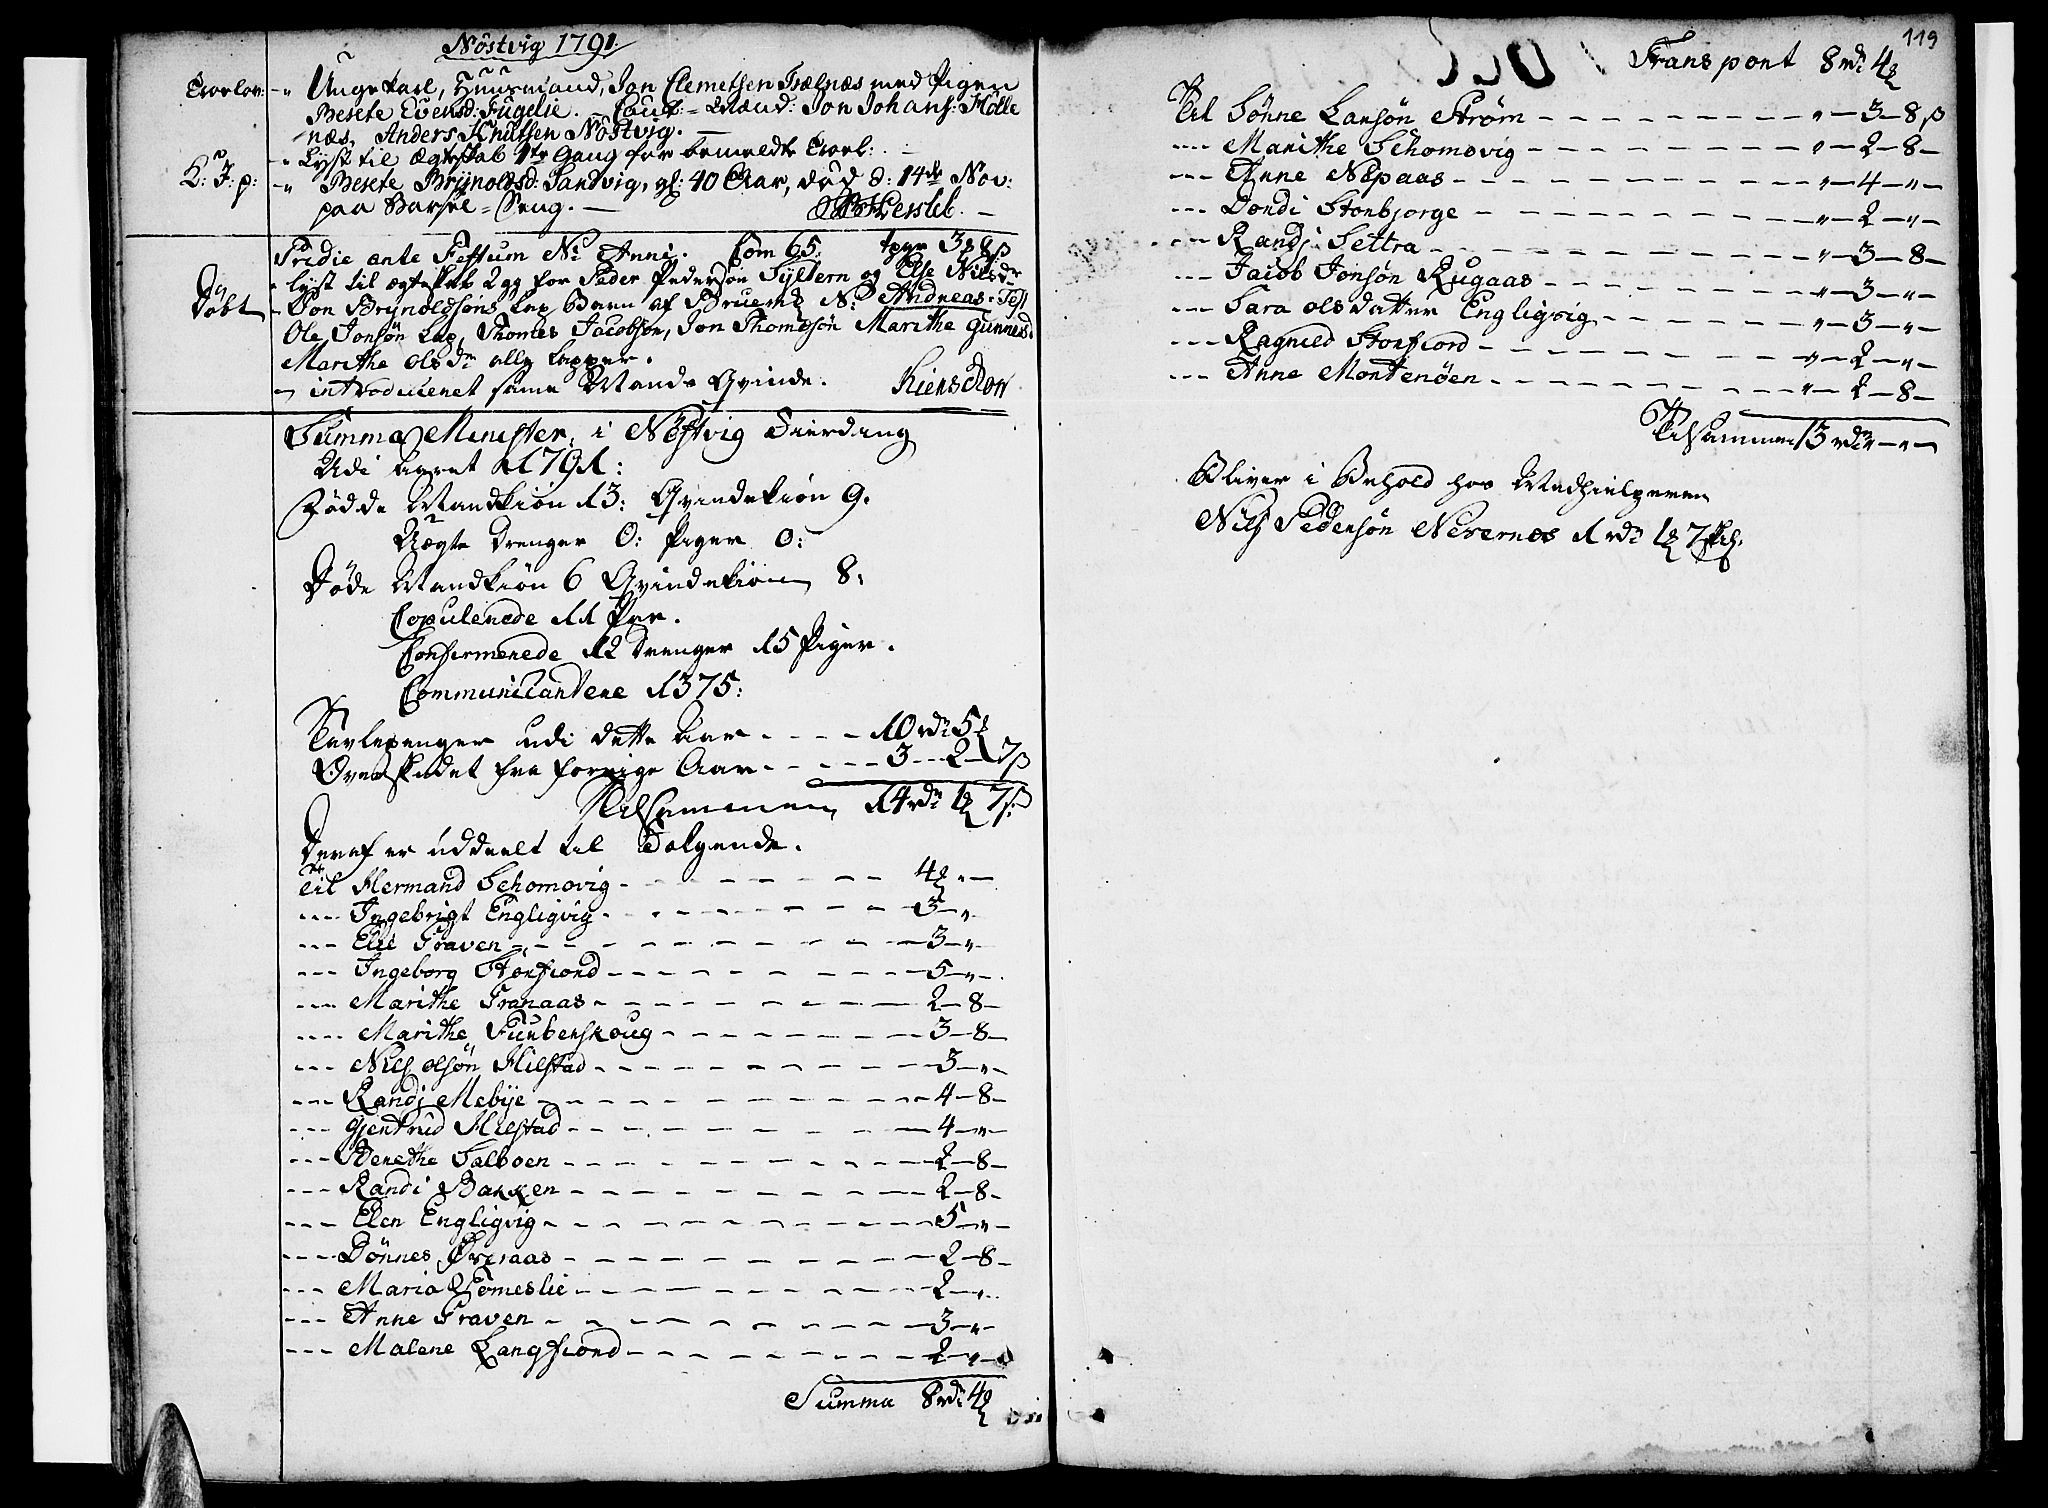 Nöstvig 1791.
Trolov: -„ Ungekarl, Huusmand, Jon Clemetsen Tselnæs med Pigen
Besete Evensd: Fugelie. - Caut: Mænd: Jon Johans: Holle
næs, Anders Knutsen Nöstvig. -
-„ Lyst til Ægteskab 1te Gang for bemeldte Trol: -
K: J: p: -„ Besete Brynoldsd: Sandvig, gl: 40 Aar, död d: 14de Nov:
paa Barsel-Seng. - Hersleb. -
Pridie ante Festum Ni Anni. Com 65.
lyst til ægteskab 2 gg for Peder Pedersön Syltern og Else Nilsdr
Döbt - Jon Brynoldsöns Lap Barn af Bruem N: Andreas. Test
Ole Jonsön Lap, Thomes Jacobsön, Jon Thomesön Marithe Gunnersd.
Marithe olsdr alle Lapper.
- introduceret samme Mands Qvinde.
Summa Minister. i Nöstvig Fierding
Udi aaret 1791:
Födde Mandkiön 13: Qvindekiön 9.
Uægte Drenger 0: Piger 0:
Döde Mandkiön 6 Qvindekiön 8:
Copulerede 11 Par.
Confirmerede 12 Drenger 15 Piger.
Communicantere 1375:
Tavlepenger udi dette Aar - - - - 10 rdr 5
Overskudet fra forrige Aar - - - - 3 - 2 - 7 ß
Tilsammen 14 rdr 1 7 ß
Deraf er uddeelt til Følgende.
til Hermand Schomovig - - - 4 „ -
---- Ingebrigt Engligvig - - - 3 - „
---- Elie Traven - - - 3 - „ -
---- Ingeborg Storfiord - - - 5 - „ -
---- Marithe Tranaas - - - 2 - 8 -
---- Marithe Furberskoug - - - 3 - 8 -
---- Nils olsön Hilstad - - - 3 - „ -
---- Randi Mebye - - - 4 - 8 -
---- Gjertrud Hilstad - - - 4 - „ -
---- Berethe Salboen - - - 2 - 8 -
---- Randi Bakken - - - 2 - 8 -
---- Elen Engligvig - - - 5 - „ -
---- Dönnes Öreaas - - - 2 - 8 -
---- Maria Romeslie - - - 2 - „ -
---- Anne Traven - - - 3 - „ -
---- Malene Langfiord - - - 2 - „ -
Summa 8 rdr 4
119
Transport 8 rdr 4
Til Sönne Larsön Ström - - - „ - 3 - 8 ß
---- Marithe Schomovig - - - „ - 2 - 8 -
---- Anne Nepaas - - - „ - 4 - „ -
---- Dordi Storbjorge - - - „ - 2 - „ -
---- Randi Settra - - - „ - 3 - 8 -
---- Jacob Jonsön Rugaas - - - „ - 3 - „ -
---- Sara olsdatter Engligvig - - - „ - 3 - „ -
---- Ragnild Storfiord - - - „ - 2 - „ -
---- Anne Mortenöen - - - „ - 2 - 8 -
Tilsammen 13 rdr - „ -
Bliver i Behold hos Medhielperen
Nils Pedersön Neverness 1 rdr 1 7 sk.